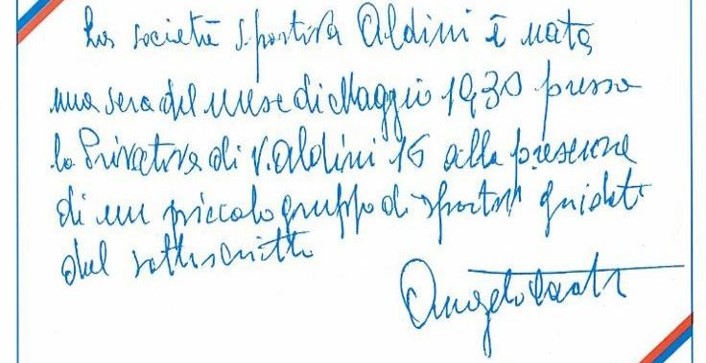 La società sportiva Aldini è nata
una sera del mese di Maggio 1930 presso
la Privativa di V. Aldini 16 alla presenza
di un piccolo gruppo di sportivi guidati
dal sottoscritto
Angelo